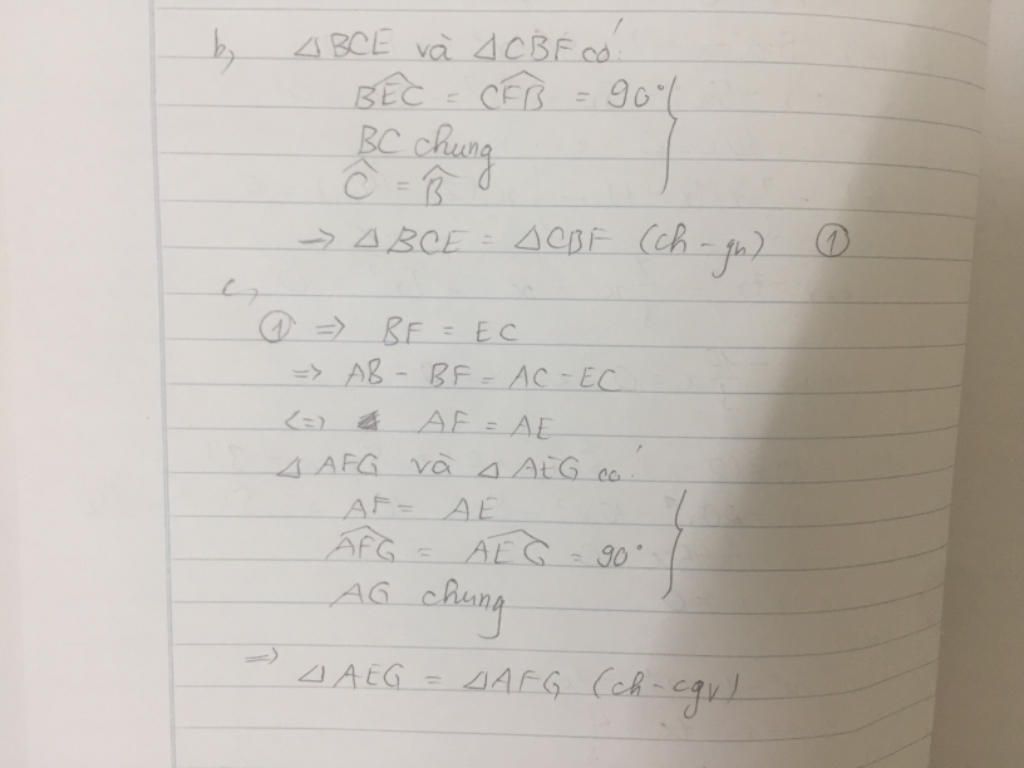 b, △BCE và △CBF có:
BEC = CFB = 90°
BC chung
Ĉ = B̂
→ △BCE = △CBF (ch - gn) ①
c,
① => BF = EC
=> AB - BF = AC - EC
<=> AF = AE
△AFG và △AEG có:
AF = AE
AFG = AEG = 90°
AG chung
=> △AEG = △AFG (ch-cgv)